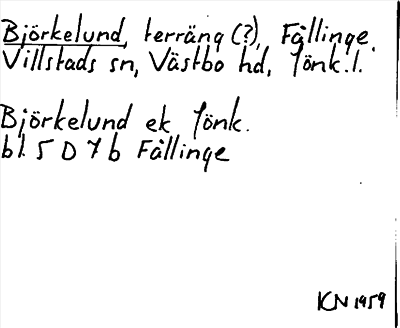 Björkelund, terräng (?), Fållinge,
Villstads sn, Västbo hd, Jönk. l.
Björkelund ek Jönk.
bl. 5 D 7 b Fållinge
KN 1959